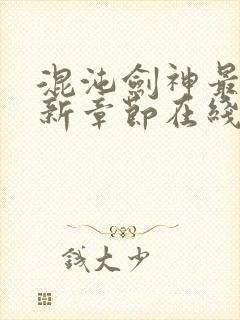 混沌劍神最
新章節在綫
錢大少